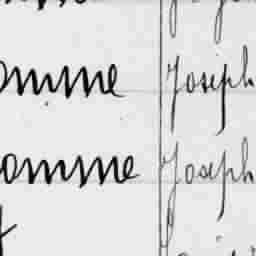 omme Joseph
omme Joseph